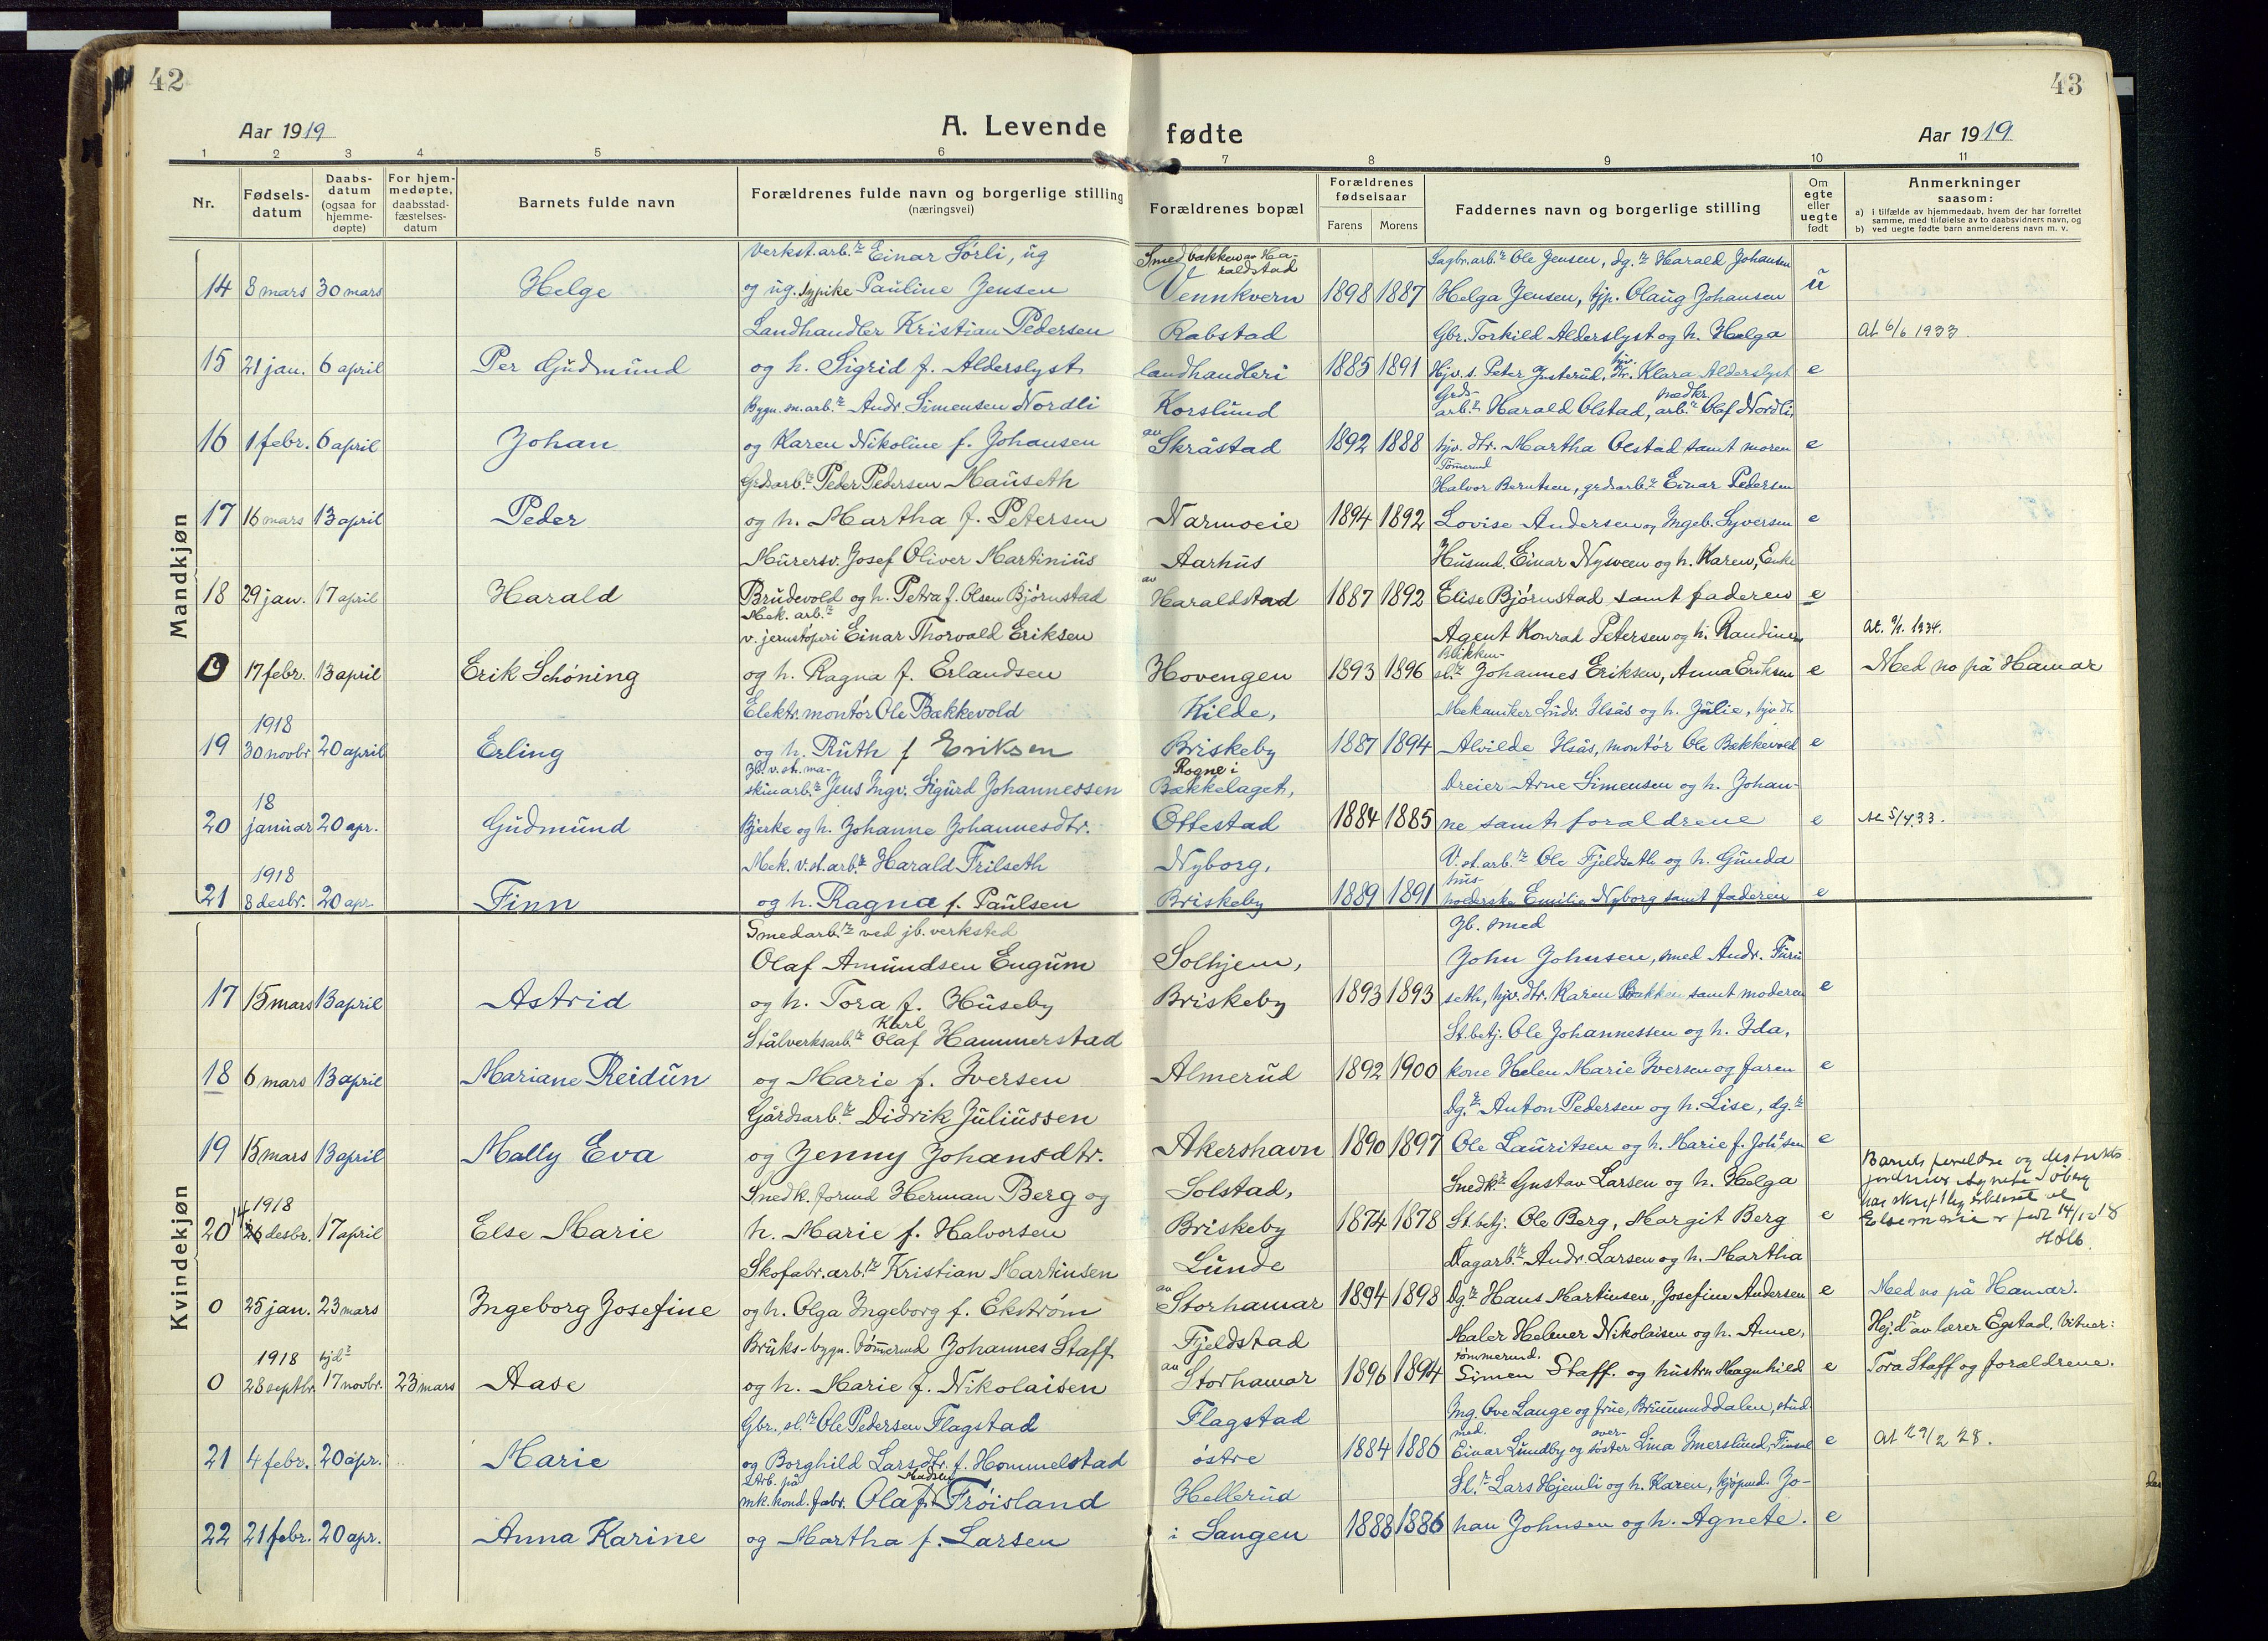 42
43
Aar 1919
A. Levende fødte
Aar 1919
1 2 3 4 5 6 7 8 9 10 11
Nr.
Fødsels-datum
Daabs-datum (ogsaa for hjemme-døpte)
For hjem-medøpte, daabsstad-fæstelses-datum
Barnets fulde navn
Forældrenes fulde navn og borgerlige stilling (næringsvei)
Forældrenes bopæl
Forældrenes fødselsaar
Farens Morens
Faddernes navn og borgerlige stilling
Om egte eller uegte født
Anmerkninger saasom:
a) i tilfælde av hjemmedaab, hvem der har forrettet samme, med tilføielse av to daabsvidners navn, og
b) ved uegte fødte barn anmelderens navn m. v.
Mandkjøn
Verkst.arb.r Einar Sörli, ug Smedbakken av Haraldstad Sagbr.arb.r Ole Jensen, dg.r Harald Johansen
14 8 mars 30 mars Helge og ug. sypike Pauline Jensen Vennkvern 1898 1887 Helga Jensen, tjp. Olaug Johansen u
Landhandler Kristian Pedersen Rabstad Gbr. Torkild Alderslyst og h. Helga At 6/6 1933
15 21 jan. 6 april Per Gudmund og h. Sigrid f. Alderslyst landhandleri 1885 1891 Hjv. s. Peter Gusterud, hjv. dtr. Klara Alderslyst e
Bygn.sn.arb.r Andr. Simensen Nordli Korslund Grds-arb.r Harald Olstad, snedkr.arb.r Olaf Nordli,
16 1 febr. 6 april Johan og Karen Nikoline f. Johansen av Skråstad 1892 1888 hjv. dtr. Martha Olstad samt moren e
Grdsarb.r Peder Pedersen Hauseth Tömermd Halvor Berntsen, grdsarb.r Einar Pedersen
17 16 mars 13 april Peder og h. Martha f. Petersen Narmoeie 1894 1892 Lovise Andersen og Ingeb. Syversen e
Murersv. Josef Oliver Martinius Aarhus Husmd. Einar Nysveen og h. Karen, Enke
18 29 jan. 17 april Harald Brudevold og h. Petra f. Olsen Björnstad av Haraldstad 1887 1892 Elise Björnstad samt faderen e
Mek. arb.r v. jernstöperi Einar Thorvald Eriksen Agent Konrad Petersen og h. Randine At. 9/1. 1934.
0 17 febr. 13 april Erik Schöning og h. Ragna f. Erlandsen Hovengen 1893 1896 Blikken-sl.r Johannes Eriksen, Anna Eriksen e Med no på Hamar
Elektr.montör Ole Bækkevold Kilde, Mekaniker Ludv. Ilsås og h. Julie, hjv. dtr
19 1918 30 novbr 20 april Erling og h. Ruth f Eriksen Briskeby 1887 1894 Alvilde Ilsås, montör Ole Bækkevold e
Jb. v. st. ma-skinarb.r Jens Ingv. Sigurd Johannessen Rogne i Bækkelaget, Dreier Arne Simensen og h. Johan-
20 18 januar 20 apr. Gudmund Bjerke og h. Johanne Johannesdtr. Ottestad 1884 1885 ne samt foraldrene e At 5/4 33.
Mek. v.st.arb.r Harald Frilseth Nyborg, V. st. arb.r Ole Fjeldseth og h. Gunda
21 1918 8 desbr. 20 apr. Finn og h. Ragna f. Paulsen Briskeby 1889 1891 hus-holderske Emilie Nyborg samt faderen e
Kvindekjøn
Smedarb.r ved jb. verksted Jb. smed
Olaf Amundsen Engum Solhjem, John Johnsen, smed Andr. Furu
17 15 mars 13 april Astrid og h. Tora f. Huseby Briskeby 1893 1893 seth, hjv. dtr. Karen Bakken samt moderen e
Stålverksarb.r Karl Olaf Hammerstad St.betj. Ole Johannessen og h. Ida,
18 6 mars 13 april Mariane Reidun og Marie f. Iversen Almerud 1892 1900 kone Helen Marie Iversen og faren e
Gårdsarb.r Didrik Juliussen Dg.r Anton Pedersen og h. Lise, dg.r
19 15 mars 13 april Mally Eva og Jenny Johansdtr. Akershavn 1890 1897 Ole Lauritsen og h. Marie f. Johsen e
Snedk. formd Herman Berg og Solstad, Snedk.r Gustav Larsen og h. Helga Barnets foreldre og distrikts jordmor Agnete Söberg
20 1918 14 26 desbr. 17 april Else Marie h. Marie f. Halvorsen Briskeby 1874 1878 St.betj. Ole Berg, Margit Berg e har skriftlig erklæret at Else Marie er født 14/12 18
Skofabr.arb.r Kristian Martinsen Lunde Dagarb.r Andr. Larsen og h. Martha
0 25 jan. 23 mars Ingeborg Josefine og h. Olga Ingeborg f. Ekström av Storhamar 1894 1898 Dg.r Hans Martinsen, Josefine Andersen e Med no på Hamar.
Bruks-bygn. tömmermd Johannes Staff Fjeldstad Maler Helmer Nikolaisen og h. Anne, Hej. dr av lærer Egstad. Vitner:
0 1918 28 septbr hjdr 17 novbr. 23 mars Aase og h. Marie f. Nikolaisen av Storhamar 1896 1894 tömmermd. Simen Staff. og hustru Magnhild e Tora Staff og foraldrene.
Gbr., sl.r Ole Pedersen Flagstad Flagstad Ing. Ove Lange og frue, Brumunddalen, stud.
21 4 febr. 20 apr. Marie og Borghild Larsdtr. f. Hommelstad östre 1884 1886 med. Einar Lundby og söster Lina Imerslund, e At 29/2 28.
Arb. på mk. kond. fabr. Olaf Madsen Fröisland Hellerud Sl.r Lars Hjemli og h. Karen, kjöpmd. Jo-
22 21 febr. 20 apr. Anna Karine og Martha f. Larsen i Sangen 1888 1886 han Johnsen og h. Agnete. e